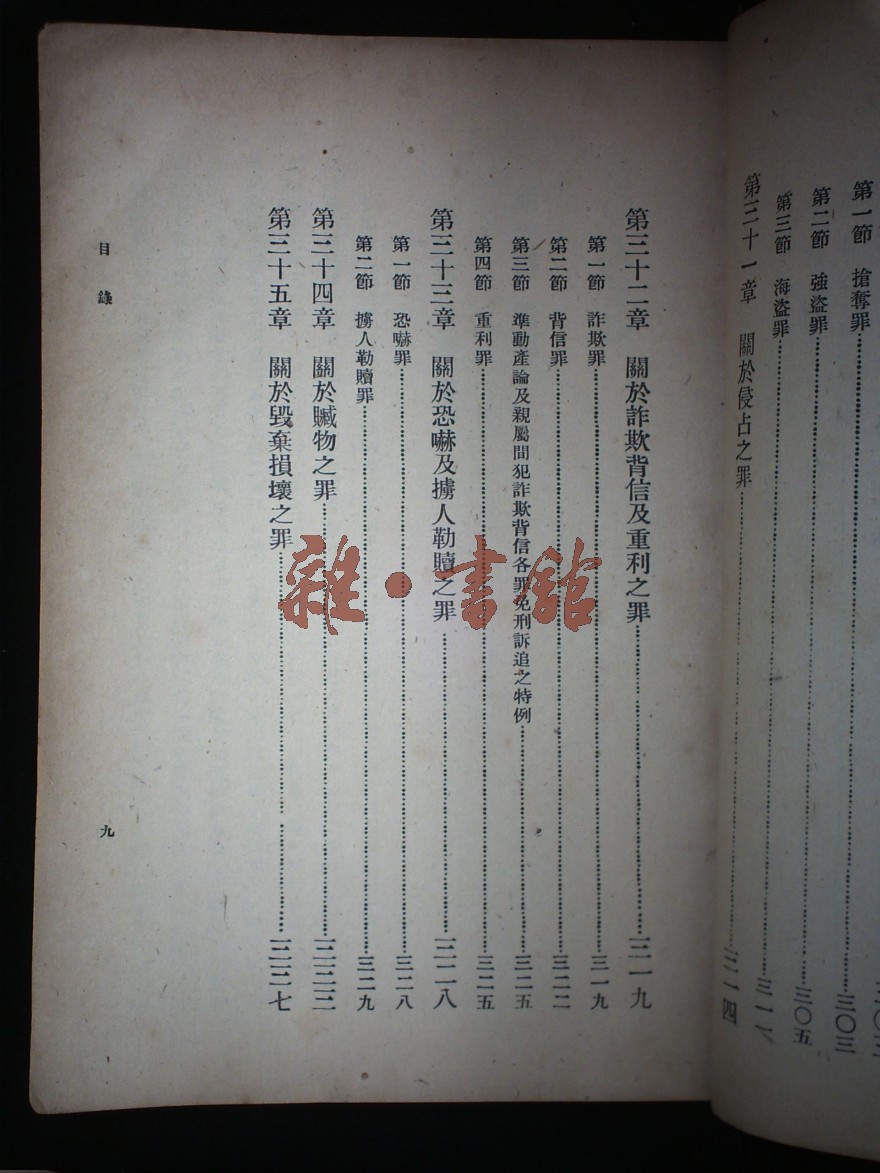 第一節 搶奪罪……三〇三
第二節 強盜罪……三〇五
第三節 海盜罪……三一一
第三十一章 關於侵占之罪……三一四
第三十二章 關於詐欺背信及重利之罪……三一九
第一節 詐欺罪……三一九
第二節 背信罪……三二二
第三節 準動產論及親屬間犯詐欺背信各罪免刑訴追之特例……三二五
第四節 重利罪……三二五
第三十三章 關於恐嚇及擄人勒贖之罪……三二八
第一節 恐嚇罪……三二八
第二節 擄人勒贖罪……三二九
第三十四章 關於贓物之罪……三三三
第三十五章 關於毀棄損壞之罪……三三七
目錄 九
雜·書館